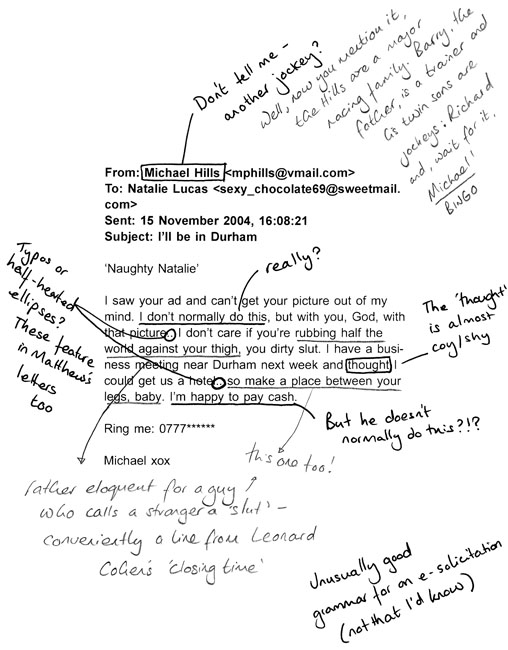 Don't tell me -
another jockey?
Well, now you mention it,
the Hills are a major
racing family. Barry, the
father, is a trainer and
his twin sons are
jockeys: Richard
and, wait for it,
Michael!
BINGO
From: Michael Hills <mphills@vmail.com>
To: Natalie Lucas <sexy_chocolate69@sweetmail.
com>
Sent: 15 November 2004, 16:08:21
Subject: I'll be in Durham
'Naughty Natalie'
really?
I saw your ad and can't get your picture out of my
mind. I don't normally do this, but with you, God, with
that picture.. I don't care if you're rubbing half the
world against your thigh, you dirty slut. I have a busi-
ness meeting near Durham next week and thought I
could get us a hotel.. so make a place between your
legs, baby. I'm happy to pay cash.
Ring me: 0777******
Michael xox
Typos or
half-hearted
ellipses?
These feature
in Matthew's
letters
too
The 'thought'
is almost
coy/shy
But he doesn't
normally do this?!?
this one too!
rather eloquent for a guy
who calls a stranger a 'slut' -
conveniently a line from Leonard
Cohen's 'closing time'
Unusually good
grammar for an e-solicitation
(not that I'd know)